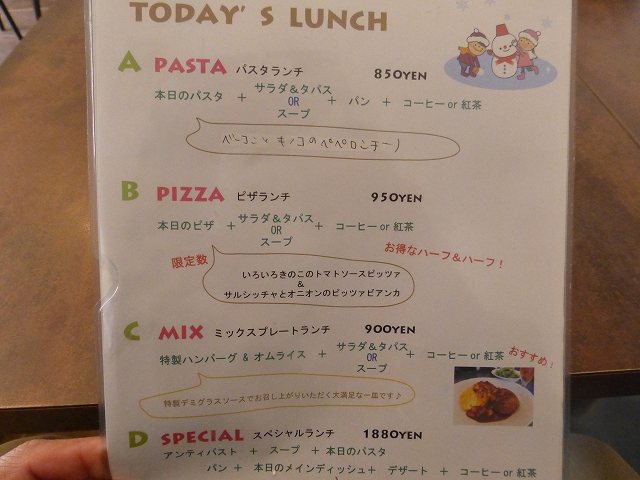 TODAY'S LUNCH
A PASTA パスタランチ 850YEN
サラダ&タパス
本日のパスタ + OR + パン + コーヒー or 紅茶
スープ
ベーコンとキノコのペペロンチーノ
B PIZZA ピザランチ 950YEN
サラダ&タパス
本日のピザ + OR + コーヒー or 紅茶
スープ
お得なハーフ&ハーフ!
限定数
いろいろきのこのトマトソースピッツァ
&
サルシッチャとオニオンのピッツァビアンカ
C MIX ミックスプレートランチ 900YEN
サラダ&タパス
特製ハンバーグ & オムライス + OR + コーヒー or 紅茶
スープ
おすすめ!
特製デミグラスソースでお召し上がりいただく大満足な一皿です♪
D SPECIAL スペシャルランチ 1880YEN
アンティパスト + スープ + 本日のパスタ
パン + 本日のメインディッシュ + デザート + コーヒー or 紅茶